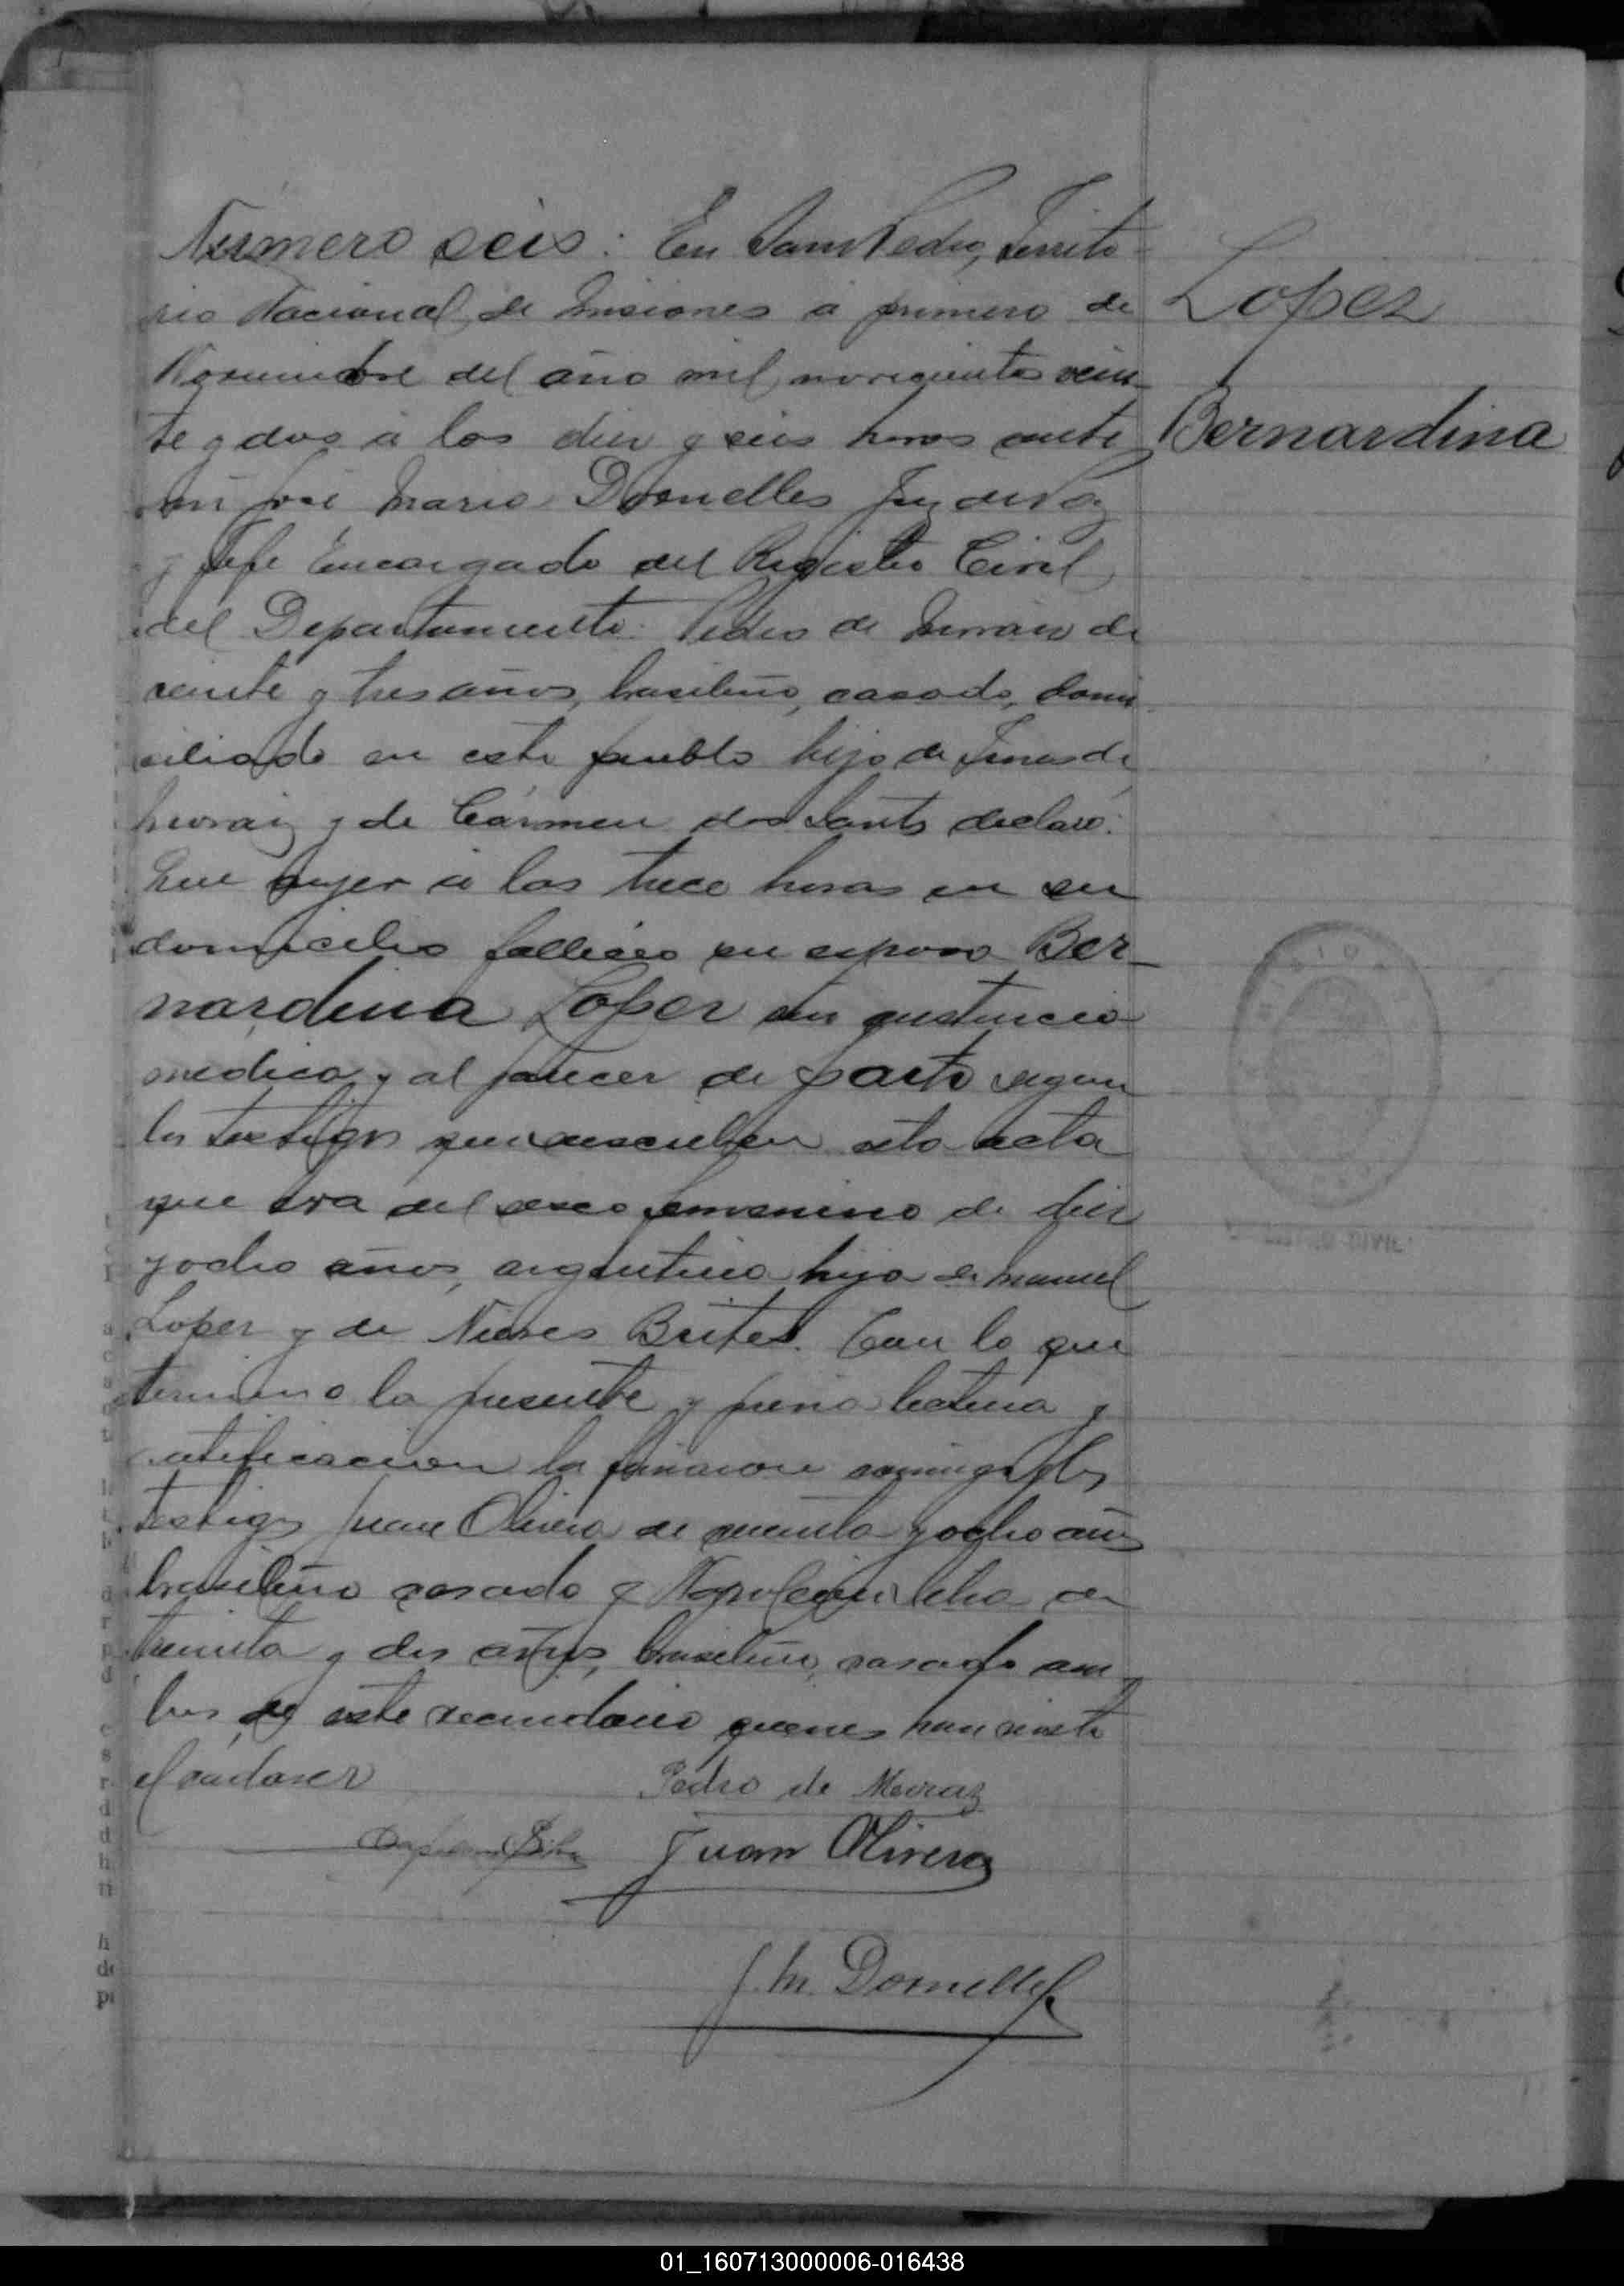 Número seis: En San Pedro, Territo-
rio Nacional de Misiones á primero de
Noviembre del año mil novecientos vein-
te y dos á las diez y seis horas ante
mí José Maria Dornelles Juez de Paz
y Jefe Encargado del Registro Civil
del Departamento: Pedro de Moraiz de
veinte y tres años, brasileño, casado, domi-
ciliado en este pueblo hijo de de
Moraiz y de Cármen dos Santos declaró:
Que ayer á las trece horas en su
domicilio falleció su esposa Ber-
nardina Lopez sin asistencia
médica y al parecer de parto segun
los testigos que suscriben esta acta
que era del sexo femenino de diez
y ocho años, argentina hija de Manuel
Lopez y de Nieves Brites. Con lo que
termino la presente y previa lectura y
ratificacion la firmaron conmigo y los
testigos Juan Olivera de y ocho años
brasileño casado y Napoleon Silva de
treinta y dos años, brasileño, casado am-
bos de este vecindario quienes han visto
el cadaver
Pedro de Moraiz
Silva Juan Olivera
J. M. Dornelles
Lopez
Bernardina
REGISTRO CIVIL
01_160713000006-016438